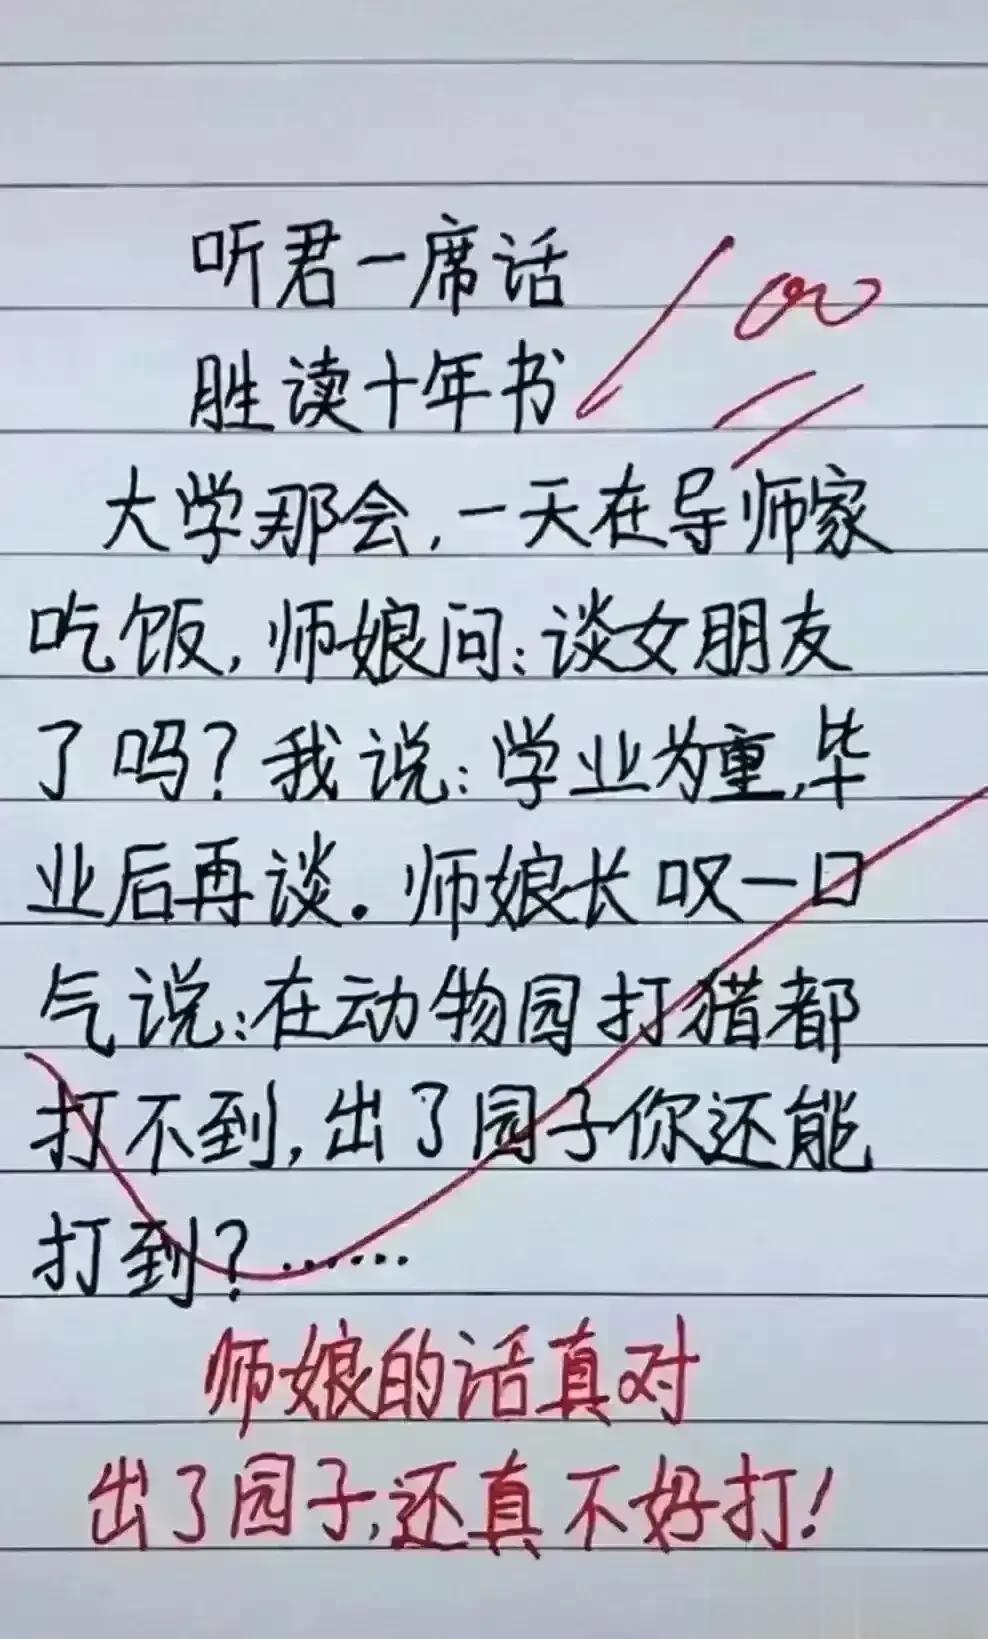 听君一席话
100
胜读十年书
大学那会,一天在导师家
吃饭,师娘问:谈女朋友
了吗?我说:学业为重,毕
业后再谈.师娘长叹一口
气说:在动物园打猎都
打不到,出了园子你还能
打到?……
师娘的话真对
出了园子,还真不好打!